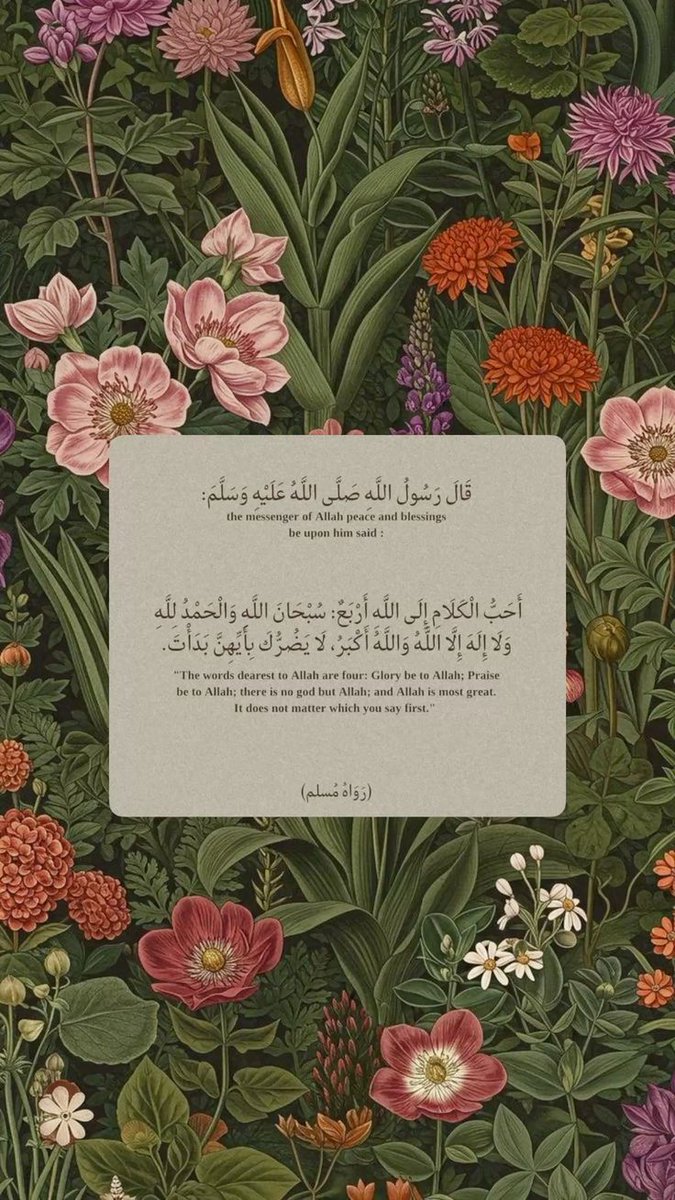 قَالَ رَسُولُ اللَّهِ صَلَّى اللَّهُ عَلَيْهِ وَسَلَّمَ:
the messenger of Allah peace and blessings
be upon him said :
أَحَبُّ الْكَلَامِ إِلَى اللَّه أَرْبَعٌ: سُبْحَانَ اللَّه وَالْحَمْدُ لِلَّهِ
وَلَا إِلَهَ إِلَّا اللَّهُ وَاللَّهُ أَكْبَرُ، لَا يَضُرُّكَ بِأَيِّهِنَّ بَدَأْتَ.
"The words dearest to Allah are four: Glory be to Allah; Praise
be to Allah; there is no god but Allah; and Allah is most great.
It does not matter which you say first."
(رَوَاهُ مُسلم)